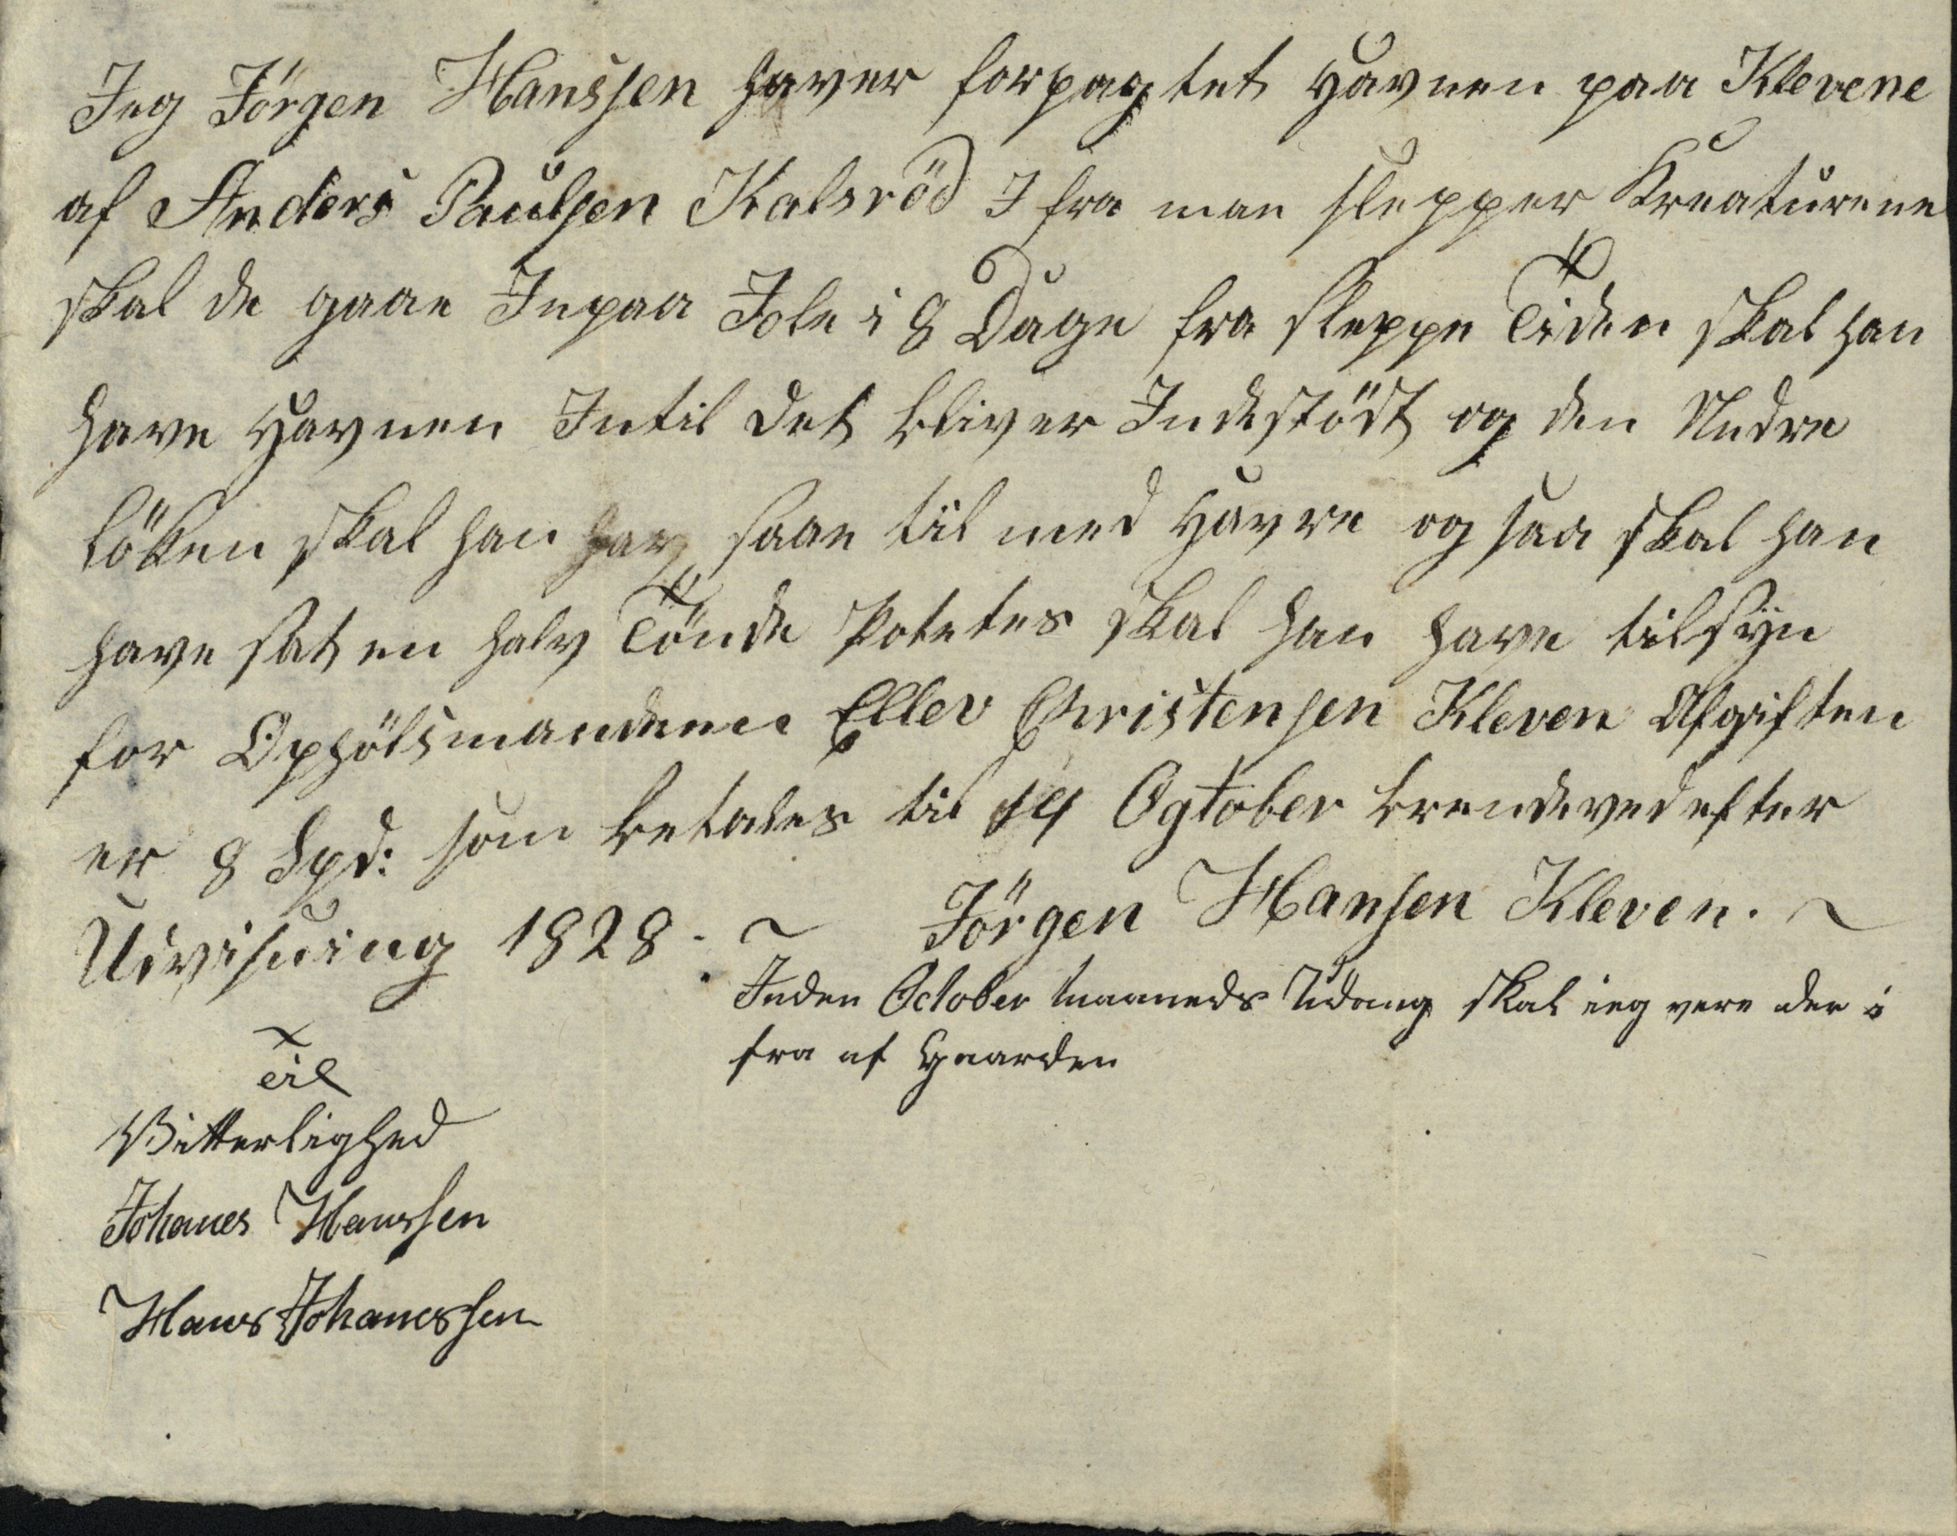 Jeg Jörgen Hanssen haver forpagtet Havnen paa Klevene
af Anders Paulsen Kalsröd I fra man slepper Kreaturene
skal de gaae Inpaa Jole i 8 Dage fra sleppe Tiden skal han
have Havnen Intil det bliver Indestödt og den Nedre
Löken skal han hav saae til med Havre og saa skal han
have sat en halv Tönde Potetes skal han have tilsyn
for Ophölsmandenne Ellev Christensen Kleven Afgiften
er 8 Spd: som betales til 14 Ogtober brendeved efter
Udvisning 1828.
Jörgen Hansen Kleven.
Inden October Maaneds Udang skal ieg vere der i
fra af Gaarden
Til
Vitterlighed
Johanes Hanssen
Hans Johanessen